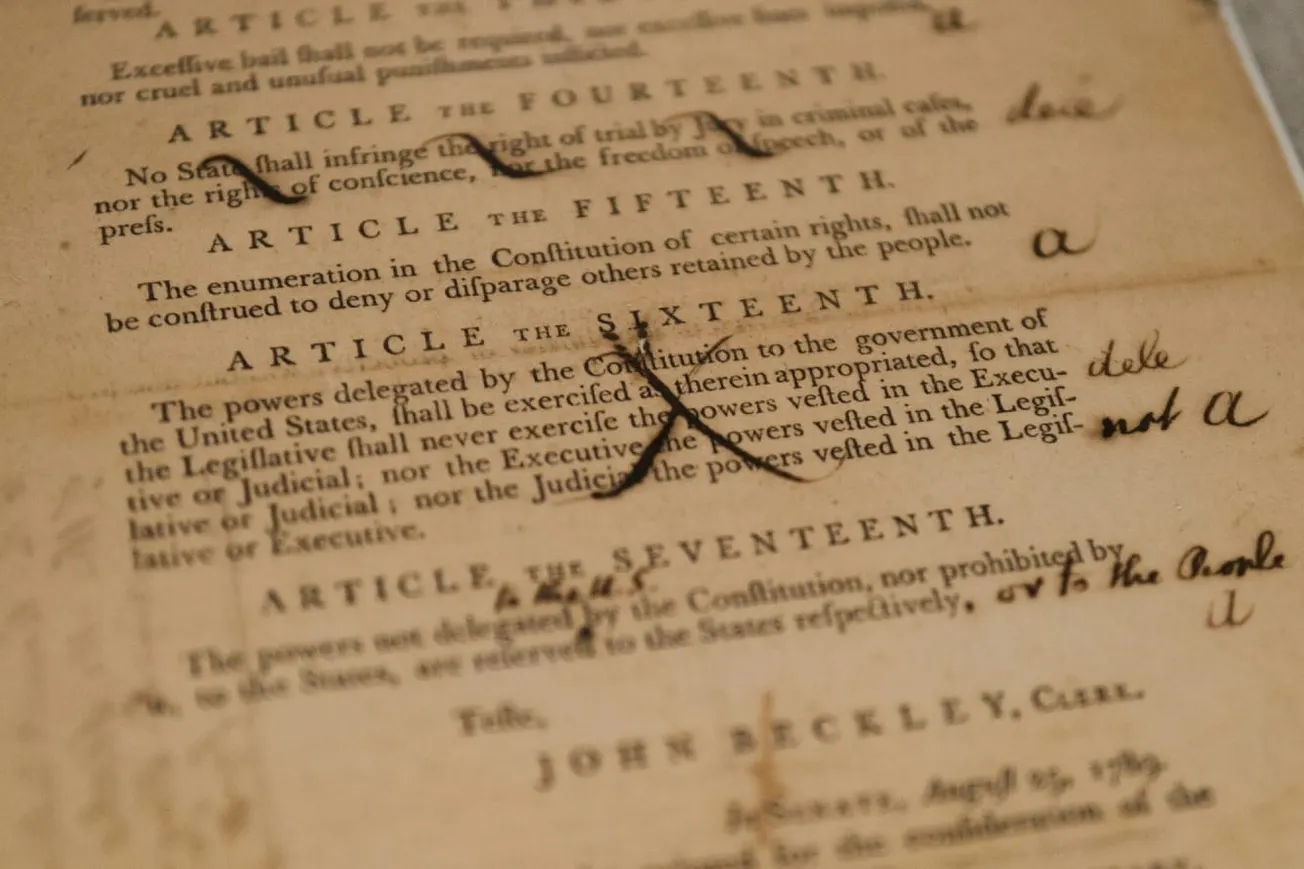 ſerved.
ARTICLE THE
Exceſſive bail ſhall not be required, nor exceſſive fines impoſed, a
nor cruel and unuſual puniſhments inflicted.
ARTICLE THE FOURTEENTH.
No State ſhall infringe the right of trial by Jury in criminal caſes, dele
nor the rights of conſcience, nor the freedom of ſpeech, or of the
preſs.
ARTICLE THE FIFTEENTH.
The enumeration in the Conſtitution of certain rights, ſhall not
be conſtrued to deny or diſparage others retained by the people. a
ARTICLE THE SIXTEENTH.
The powers delegated by the Conſtitution to the government of
the United States, ſhall be exerciſed as therein appropriated, ſo that dele
the Legiſlative ſhall never exerciſe the powers veſted in the Execu-
tive or Judicial; nor the Executive the powers veſted in the Legiſ- not a
lative or Judicial; nor the Judicial the powers veſted in the Legiſ-
lative or Executive.
ARTICLE THE SEVENTEENTH.
to the U.S.
The powers not delegated by the Conſtitution, nor prohibited by
it, to the States, are reſerved to the States reſpectively, or to the People
a
Teſte,
JOHN BECKLEY, CLERK.
In SENATE, Auguſt 25, 1789.
for the conſideration of the